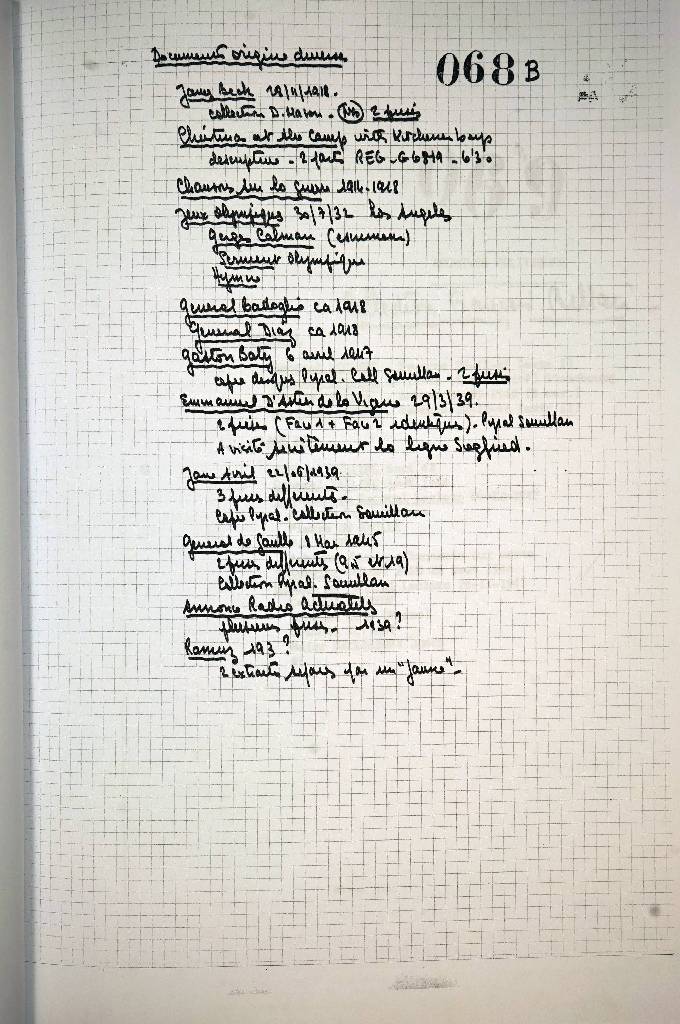 Documents origine diverse
068 B
James Beck 29/11/1918.
Collection D. Mason. 2 prises
Christmas at the Camp with Kitcheners boys
descriptive - 2 parts REG - G6849 - 6'30
Chansons sur la guerre 1914-1918
Jeux Olympiques 30/7/32 Los Angeles
Georges Calman (escrimeur)
Serment Olympique
Hymne
General Badoglio ca 1918
General Diaz ca 1918
Gaston Baty 6 avril 1947
copie disques Pyral. Coll Sauvillan - 2 prises
Emmanuel D'Astier de la Vigne 29/3/39.
2 prises (Face 1 + Face 2 identiques). Pyral Sauvillan
A visité secrètement la ligne Siegfried.
Jane Avril 22/06/1939
3 prises différentes.
Copie Pyral. Collection Sauvillan
General de Gaulle 8 Mai 1945
2 prises différentes
Collection Pyral. Sauvillan
Annonce Radio Actualités
plusieurs prises. 1939?
Ramuz 193?
2 extraits séparés par un "jaune".